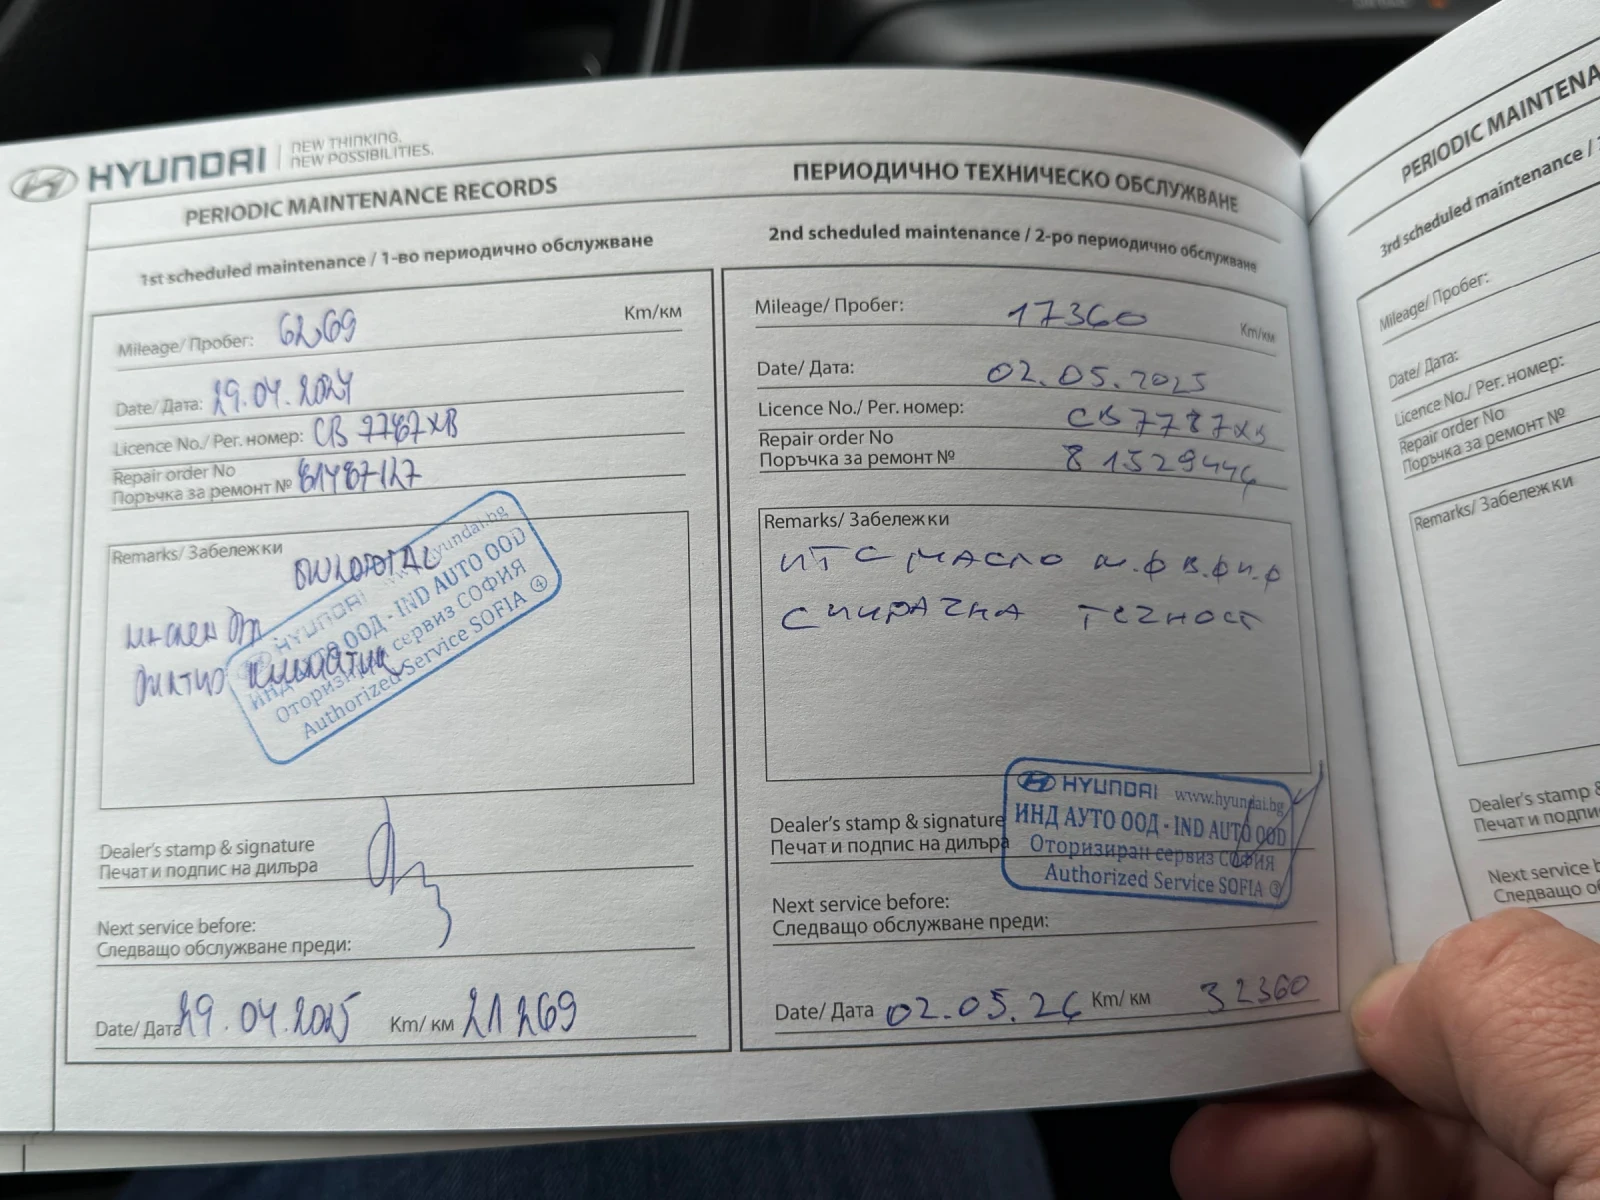 HYUNDAI | NEW THINKING.
NEW POSSIBILITIES.
PERIODIC MAINTENANCE RECORDS
1st scheduled maintenance / 1-во периодично обслужване
Mileage/ Пробег: 6269 Km/км
Date/ Дата: 29.04.2024
Licence No./ Рег. номер: СВ 7787ХВ
Repair order No
Поръчка за ремонт №
Remarks/ Забележки
маслен
филтър
HYUNDAI www.hyundai.bg
ИНД АУТО ООД - IND AUTO OOD
Оторизиран сервиз СОФИЯ
Authorized Service SOFIA 4
Dealer's stamp & signature
Печат и подпис на дилъра
Next service before:
Следващо обслужване преди:
Date/ Дата 29.04.2025 Km/ км 21269
ПЕРИОДИЧНО ТЕХНИЧЕСКО ОБСЛУЖВАНЕ
2nd scheduled maintenance / 2-ро периодично обслужване
Mileage/ Пробег: 17360 Km/км
Date/ Дата: 02.05.2025
Licence No./ Рег. номер: СВ7787ХВ
Repair order No
Поръчка за ремонт № 81529446
Remarks/ Забележки
ИТС МАСЛО М.Ф В.Ф И.Ф
СПИРАЧНА ТЕЧНОСТ
HYUNDAI www.hyundai.bg
ИНД АУТО ООД - IND AUTO OOD
Оторизиран сервиз СОФИЯ
Authorized Service SOFIA 3
Dealer's stamp & signature
Печат и подпис на дилъра
Next service before:
Следващо обслужване преди:
Date/ Дата 02.05.26 Km/ км 32360
PERIODIC MAINTENA
3rd scheduled maintenance /
Mileage/ Пробег:
Date/ Дата:
Licence No./ Рег. номер:
Repair order No
Поръчка за ремонт №
Remarks/ Забележки
Dealer's stamp &
Печат и подпи
Next service b
Следващо о